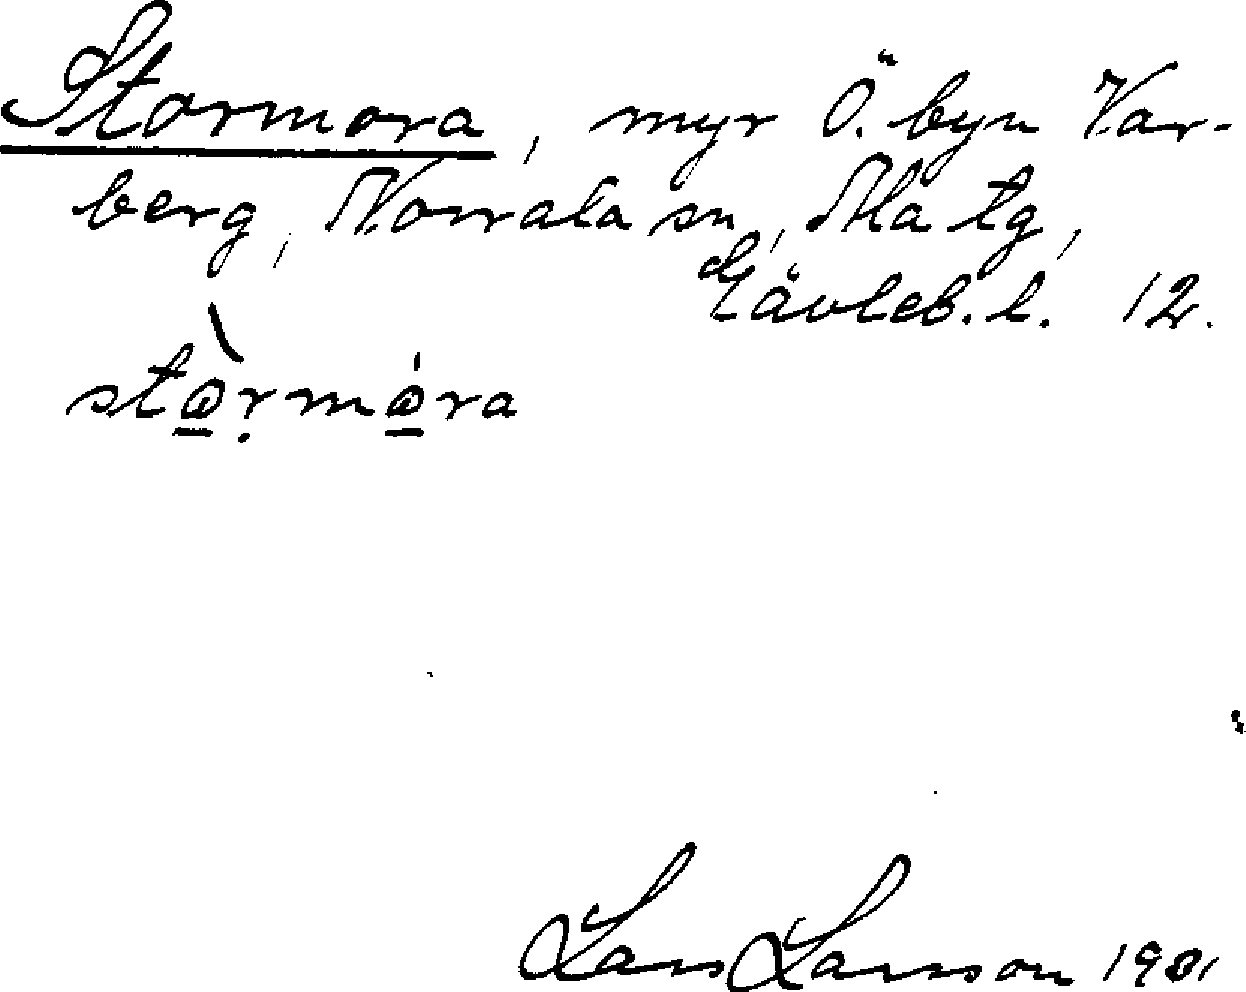 Stormora, myr Ö. byn Var-
berg, Norrala sn, Ala tg,
Gävleb. l. 12.
Lars Larsson 1901